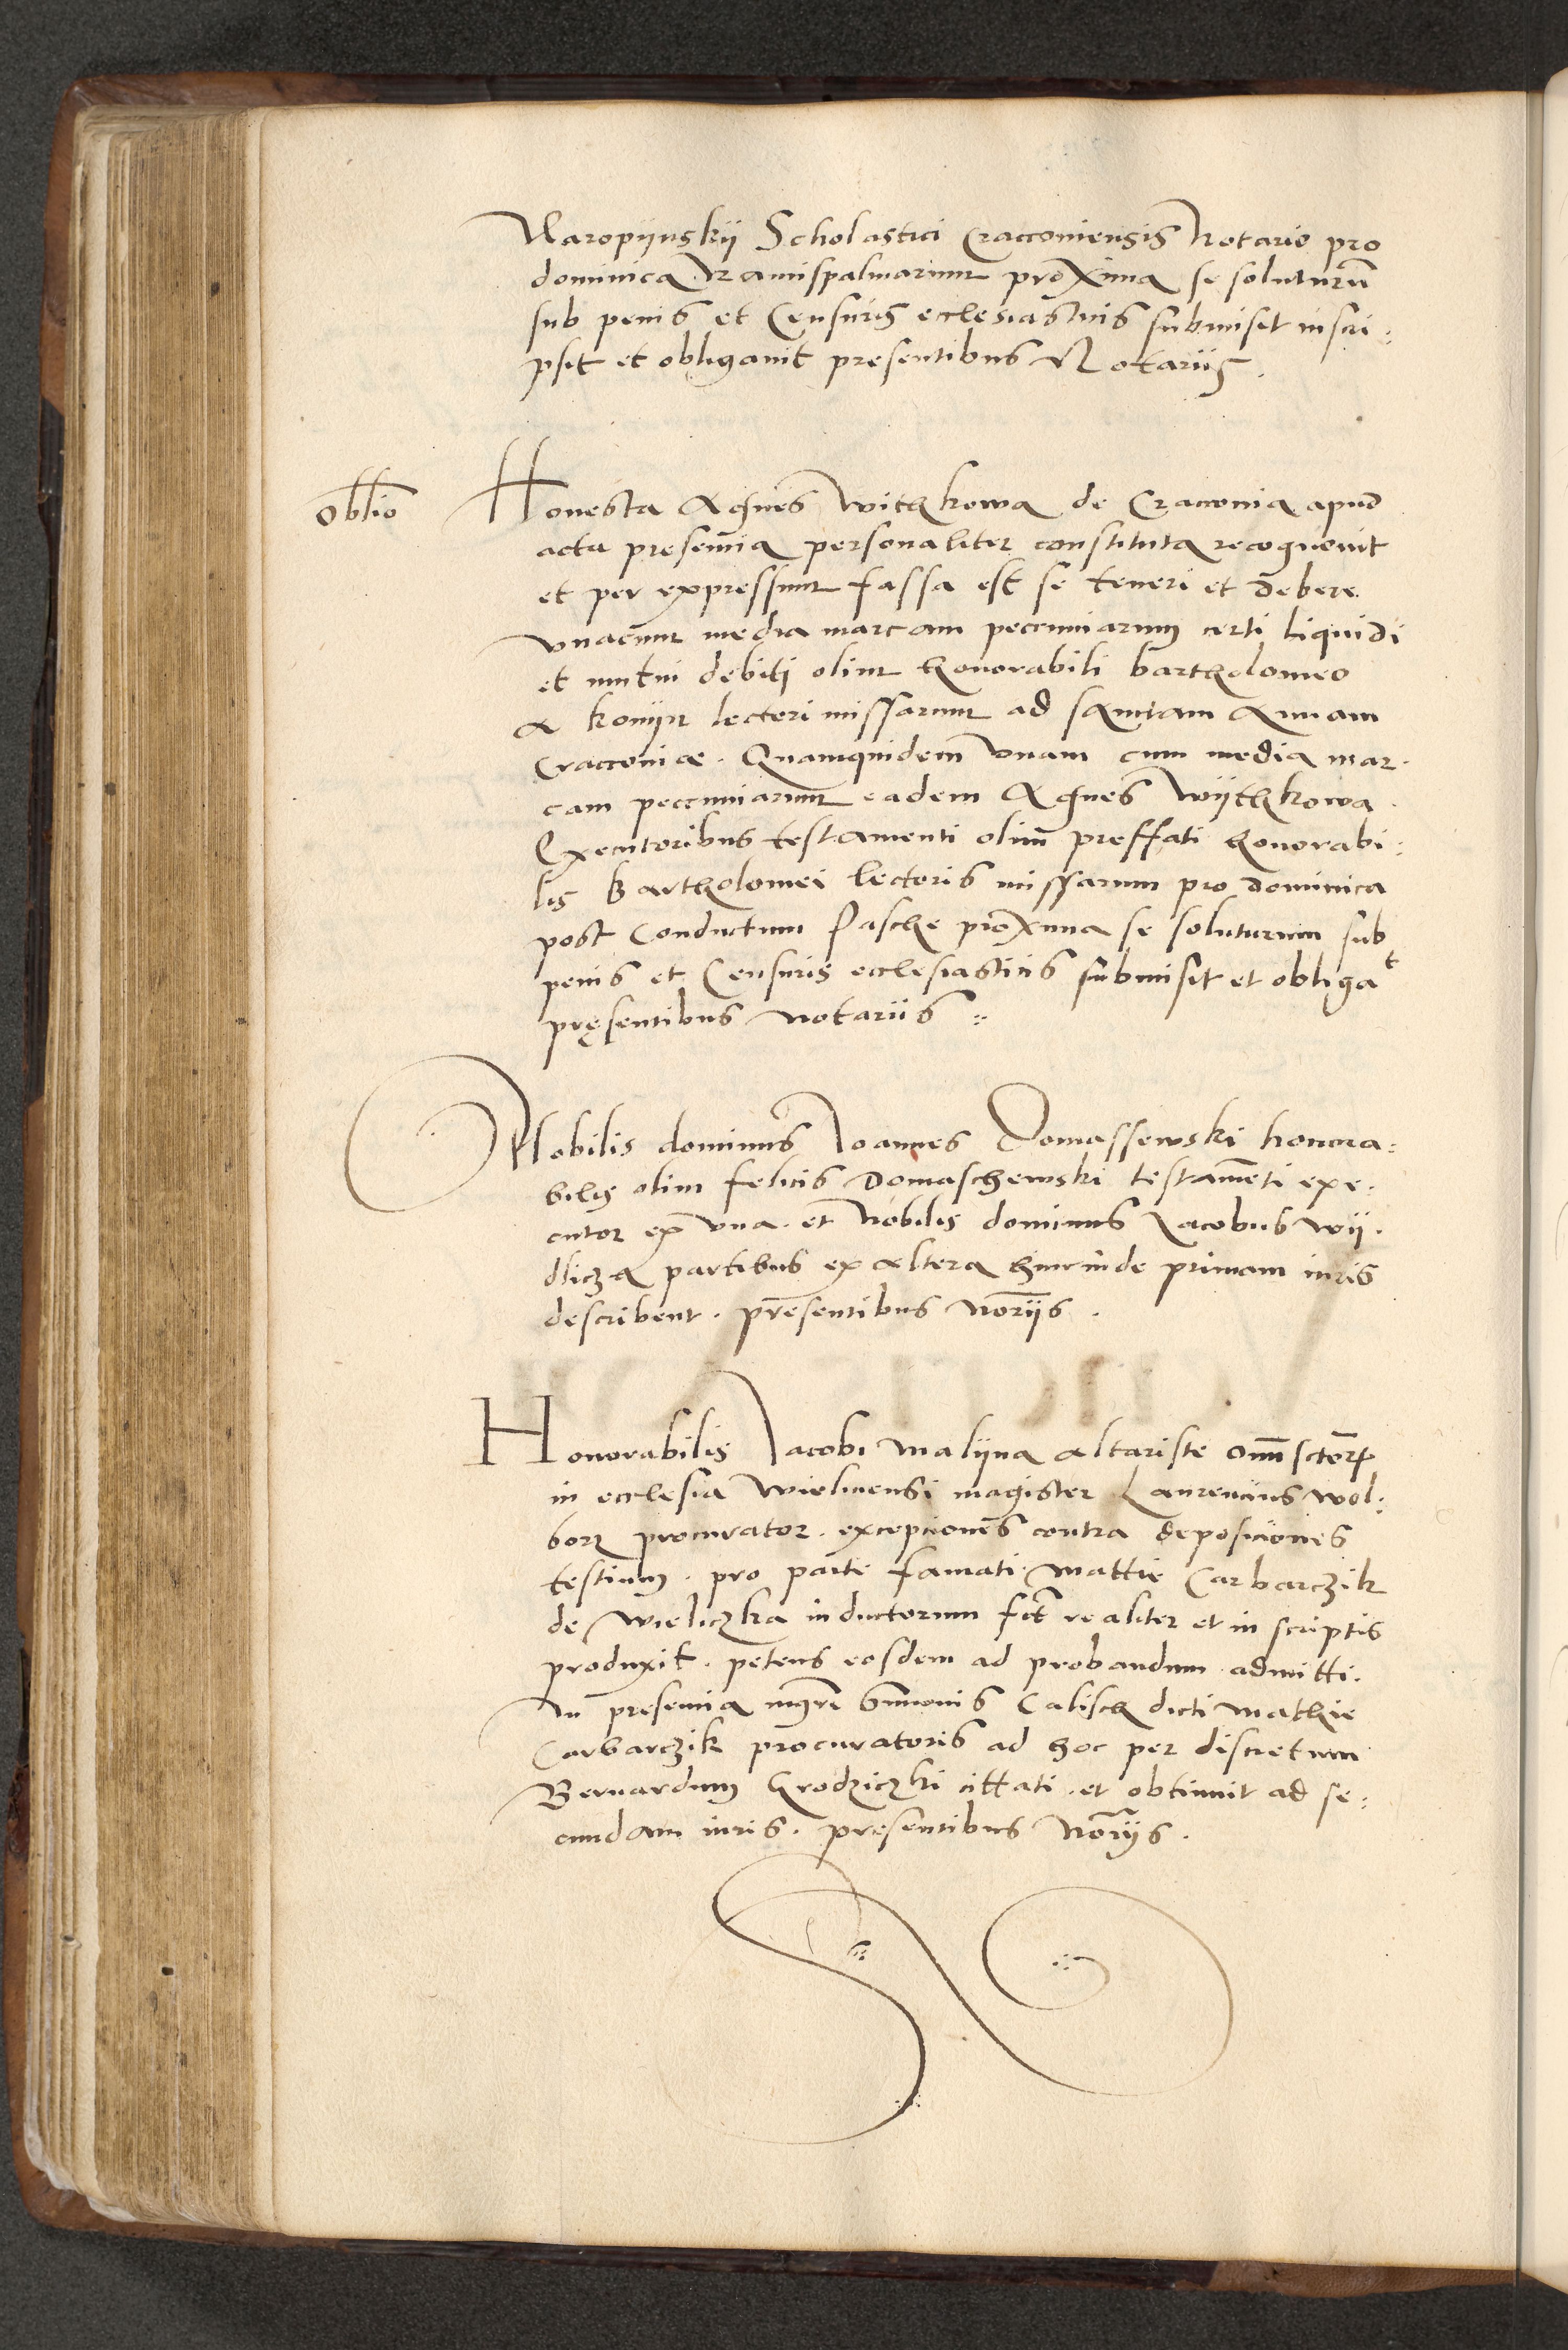 Naropijnskij Scholastici Cracoviensis Notario pro
dominica Ramispalmarum proxima se soluturū
sub penis et Censuris ecclesiasticis submisit inscri:
psit et obligavit presentibus Notariis.
Obllio
Honesta Agnes Withkowa de Cracovia apud
acta presencia personaliter constituta recognovit
et per expressum fassa est se teneri et debere
unacum media marcam peccuniarum certi liquidi
et mutui debiti olim honorabili bartholomeo
a konijn lectori missarum ad sanctam Annam
Cracoviae. Quamquidem unam cum media mar-
cam peccuniarum eadem Agnes Wijthkowa
Executoribus testamenti olim preffati honorabi:
lis Bartholomei lectoris missarum pro dominica
post Conductum Pasche proxima se soluturum sub
penis et Censuris ecclesiasticis submisit et obligat
pręsentibus notariis
Nobilis dominus Ioannes Domassewski honora:
bilis olim felicis Domaschewski testamēti exe-
cutor ex una et Nobilis dominus Iacobus Wij-
dlicza partibus ex altera hincinde primam iuris
describent. presentibus Norijs.
Honorabilis Iacobi Malijna altariste Oīm sctōrꝝ
in ecclesia Wielicensi magister Laurencius Wol:
borz procurator. excepciones contra deposiciones
testium. pro parte famati Mattie Carbarczik
de Wieliczka inductorum fct realiter et in scriptis
produxit. petens eosdem ad probandum admitti.
In presencia mgri Simonis Calisch dicti Mathie
Carbarczik procuratoris ad hoc per discretum
Bernardum Grodziczki cittati. et obtinuit ad se:
cundam iuris. presentibus Norijs.